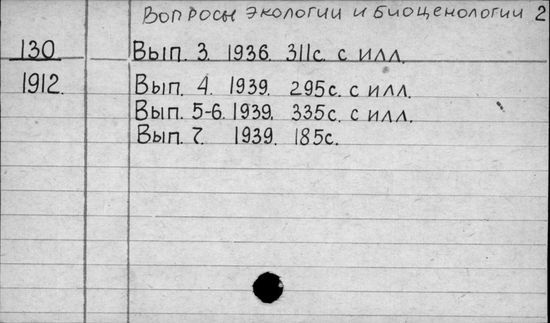 Вопросы экологии и биоценологии 2
130 Вып. 3. 1936. 311с. с илл.
1912. Вып. 4. 1939. 295с. с илл.
Вып. 5-6. 1939. 335с. с илл.
Вып. 7. 1939. 185с.